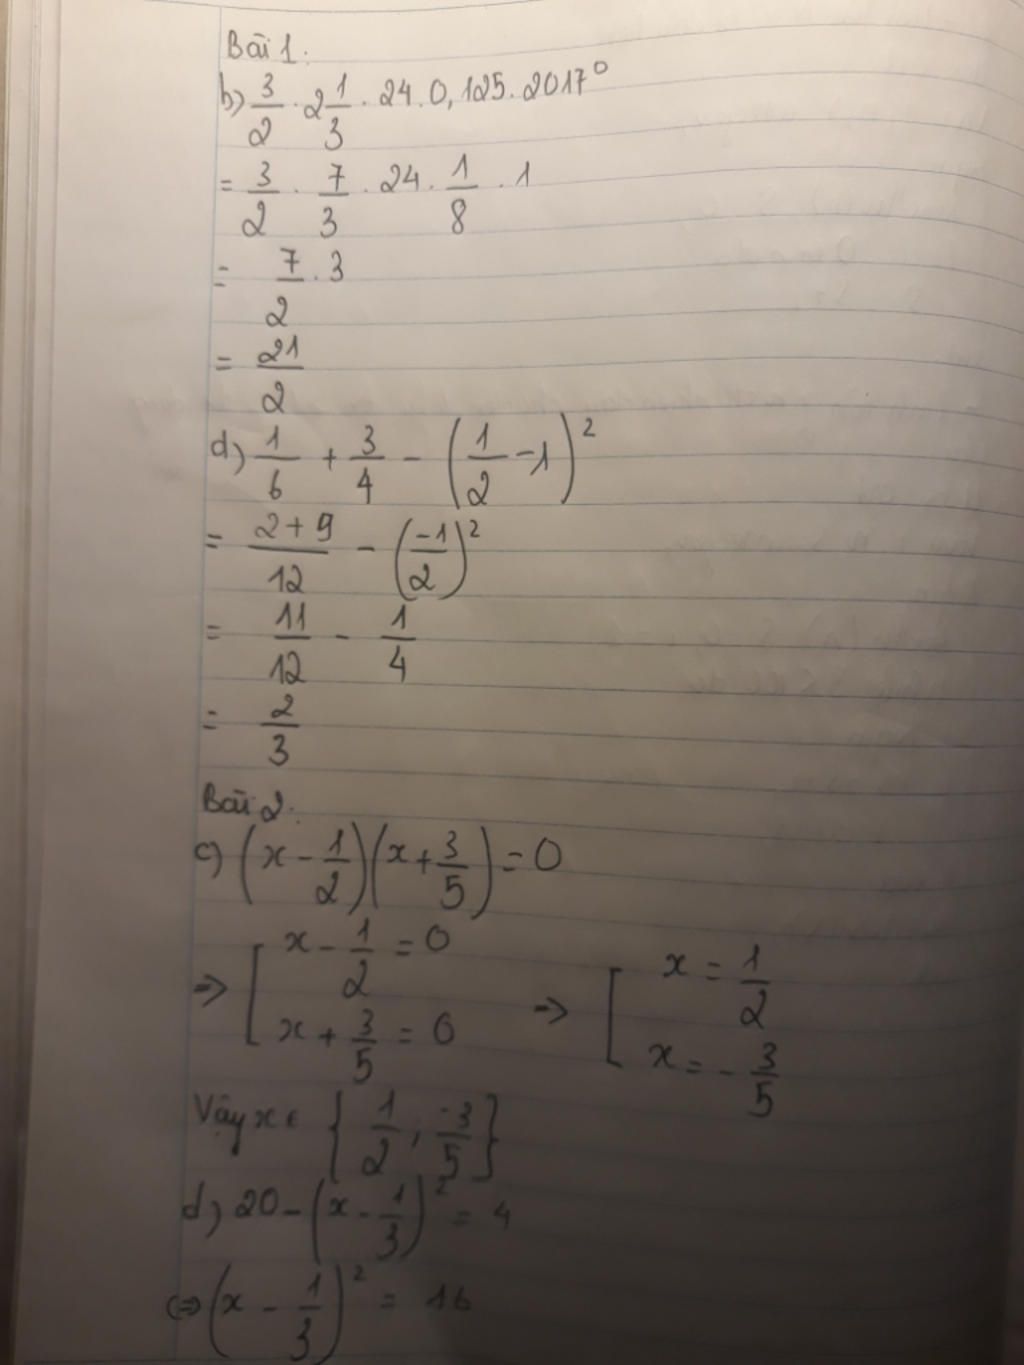 Bài 1.
b) 3/2 . 2 1/3 . 24 . 0,125 . 2017⁰
= 3/2 . 7/3 . 24 . 1/8 . 1
= 7/2 . 3
= 21/2
d) 1/6 + 3/4 - (1/2 - 1)²
= (2+9)/12 - (-1/2)²
= 11/12 - 1/4
= 2/3
Bài 2.
c) (x - 1/2)(x + 3/5) = 0
=> [ x - 1/2 = 0 => [ x = 1/2
x + 3/5 = 0 x = -3/5
Vậy x ∈ {1/2 ; -3/5}
d) 20 - (x - 1/3)² = 4
<=> (x - 1/3)² = 16